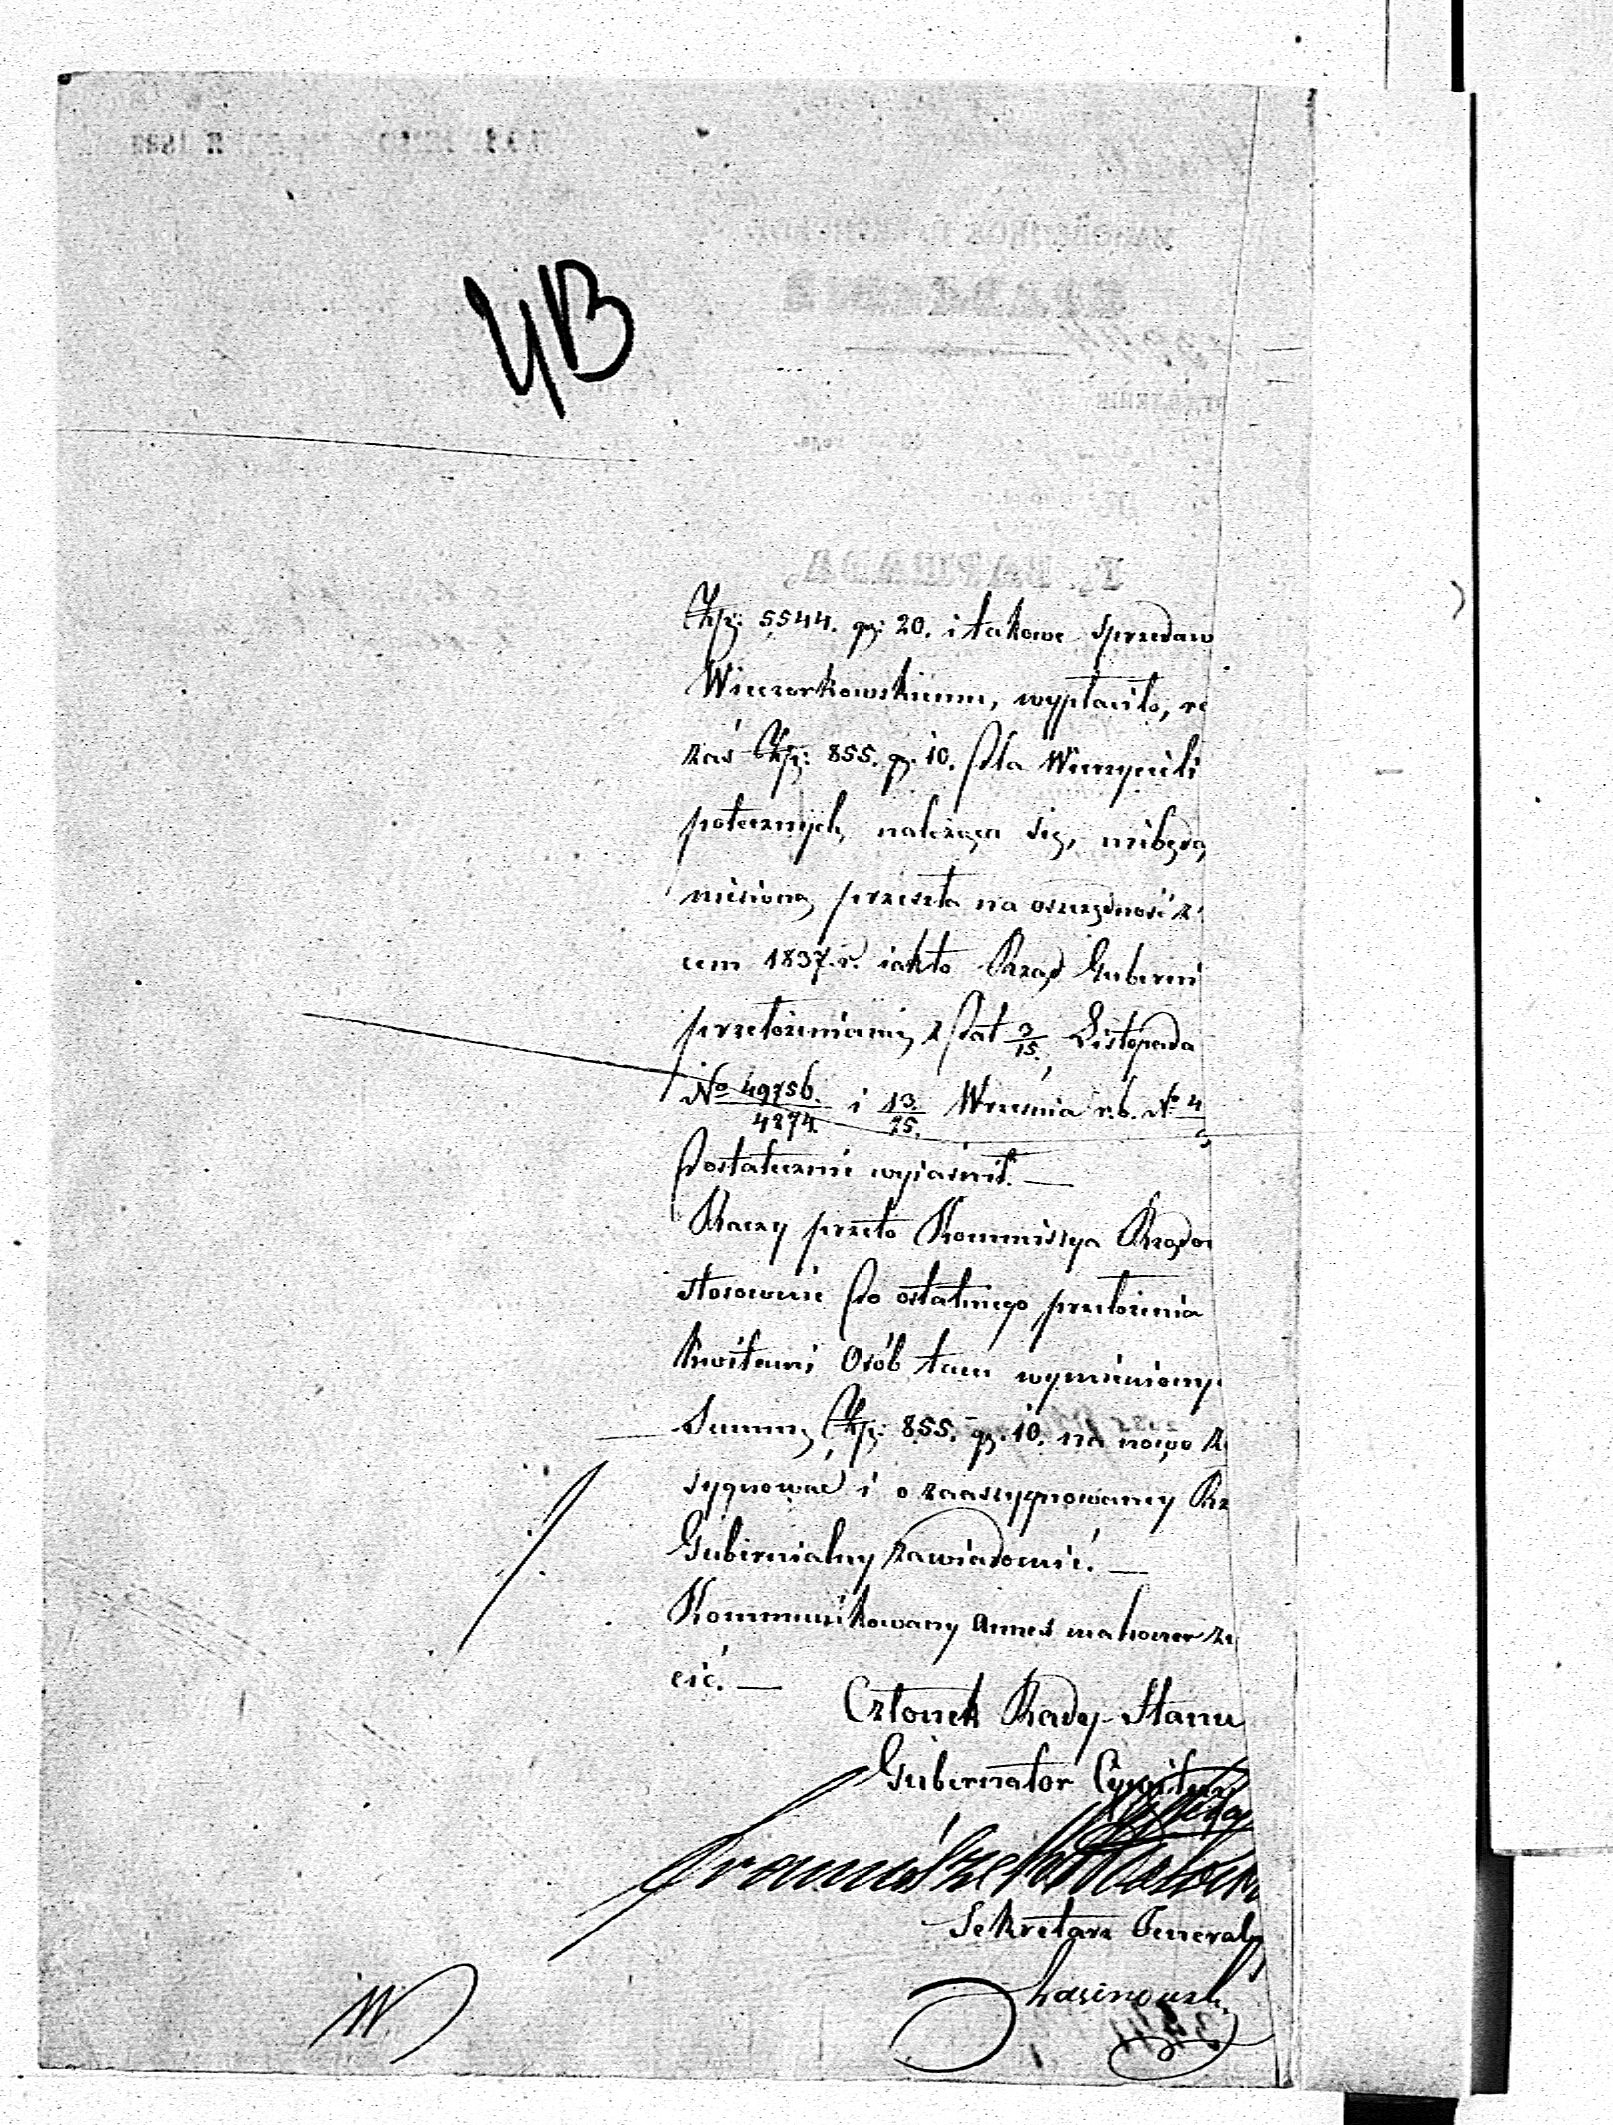 YB
Złp: 5544. gr: 20. i takowe sprzedaw
Wieczorkowskiemu, wypłacił, re
zaś Złp: 855. gr. 10. dla Wierzycieli
potecznych należąca się, niebędą
niesioną przeszła na oszczędność z
cem 1837. r. iak to Rząd Guberni
przełożeniami z dat 3/15. Listopada
No 49756./4274. i 13./25. Września r. b. No 4
dostatecznie wyjaśnił. —
Raczy przeto Kommissya Rządo
stosownie do ostatniego przełożenia
kwitami Osób tam wymieniony
Summę Złp: 855. gr. 10. na nowo z
sygnować i o zaassygnowaniu Rz
Gubernialny zawiadomić. —
Kommunikowany annex ma honor zw
cić. —
Członek Rady Stanu
Gubernator Cywilny
Sekretarz Generalny